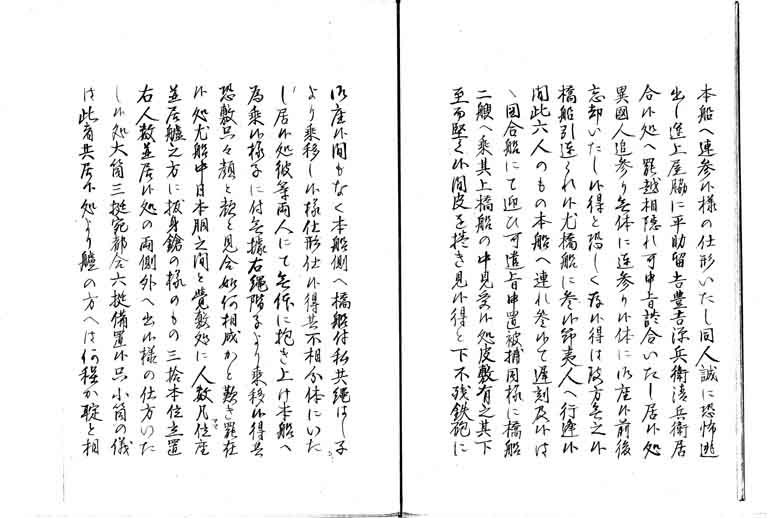 本船へ連参候様の仕形いたし同人誠に恐怖逃
出し進上屋脇に平助留吉豊吉源兵衛清兵衛居
合候処へ罷越相隠れ可申旨談合いたし居候処
異国人追参り無体に連参り候体に御座候前後
忘却いたし候得と恐しく存候得は致方無之候
橋船引連られ候尤橋船に参候節夷人へ行逢候
間此六人のもの本船へ連れ参候て遅刻及候は
ヽ図合船にて迎ひ可遣旨申置被捕同様に橋船
二艘へ乗其上橋船の中見受候処皮敷有之其下
至而堅く候間皮を捲き見候得と下不残鉄砲に
御座候間もなく本船側へ橋船付私共縄はし子
より乗移し候様仕形仕候得共不相分体にいた
し居候処彼等両人にて無体に抱き上け本船へ
為乗候様子に付無據右縄階子より乗移候得共
恐敷只々顔と顔と見合如何相成かと歎き罷在
候処尤船中日本胴之間と覚敷処に人数凡 位座
並居艫之方に抜身鎗の様のもの三拾本位立置
右人数並居候処の両側外へ出候様の仕方いた
し候処大筒三挺宛都合六挺備置候只小筒の儀
は此者共居候処より艫の方へは何程か聢と相